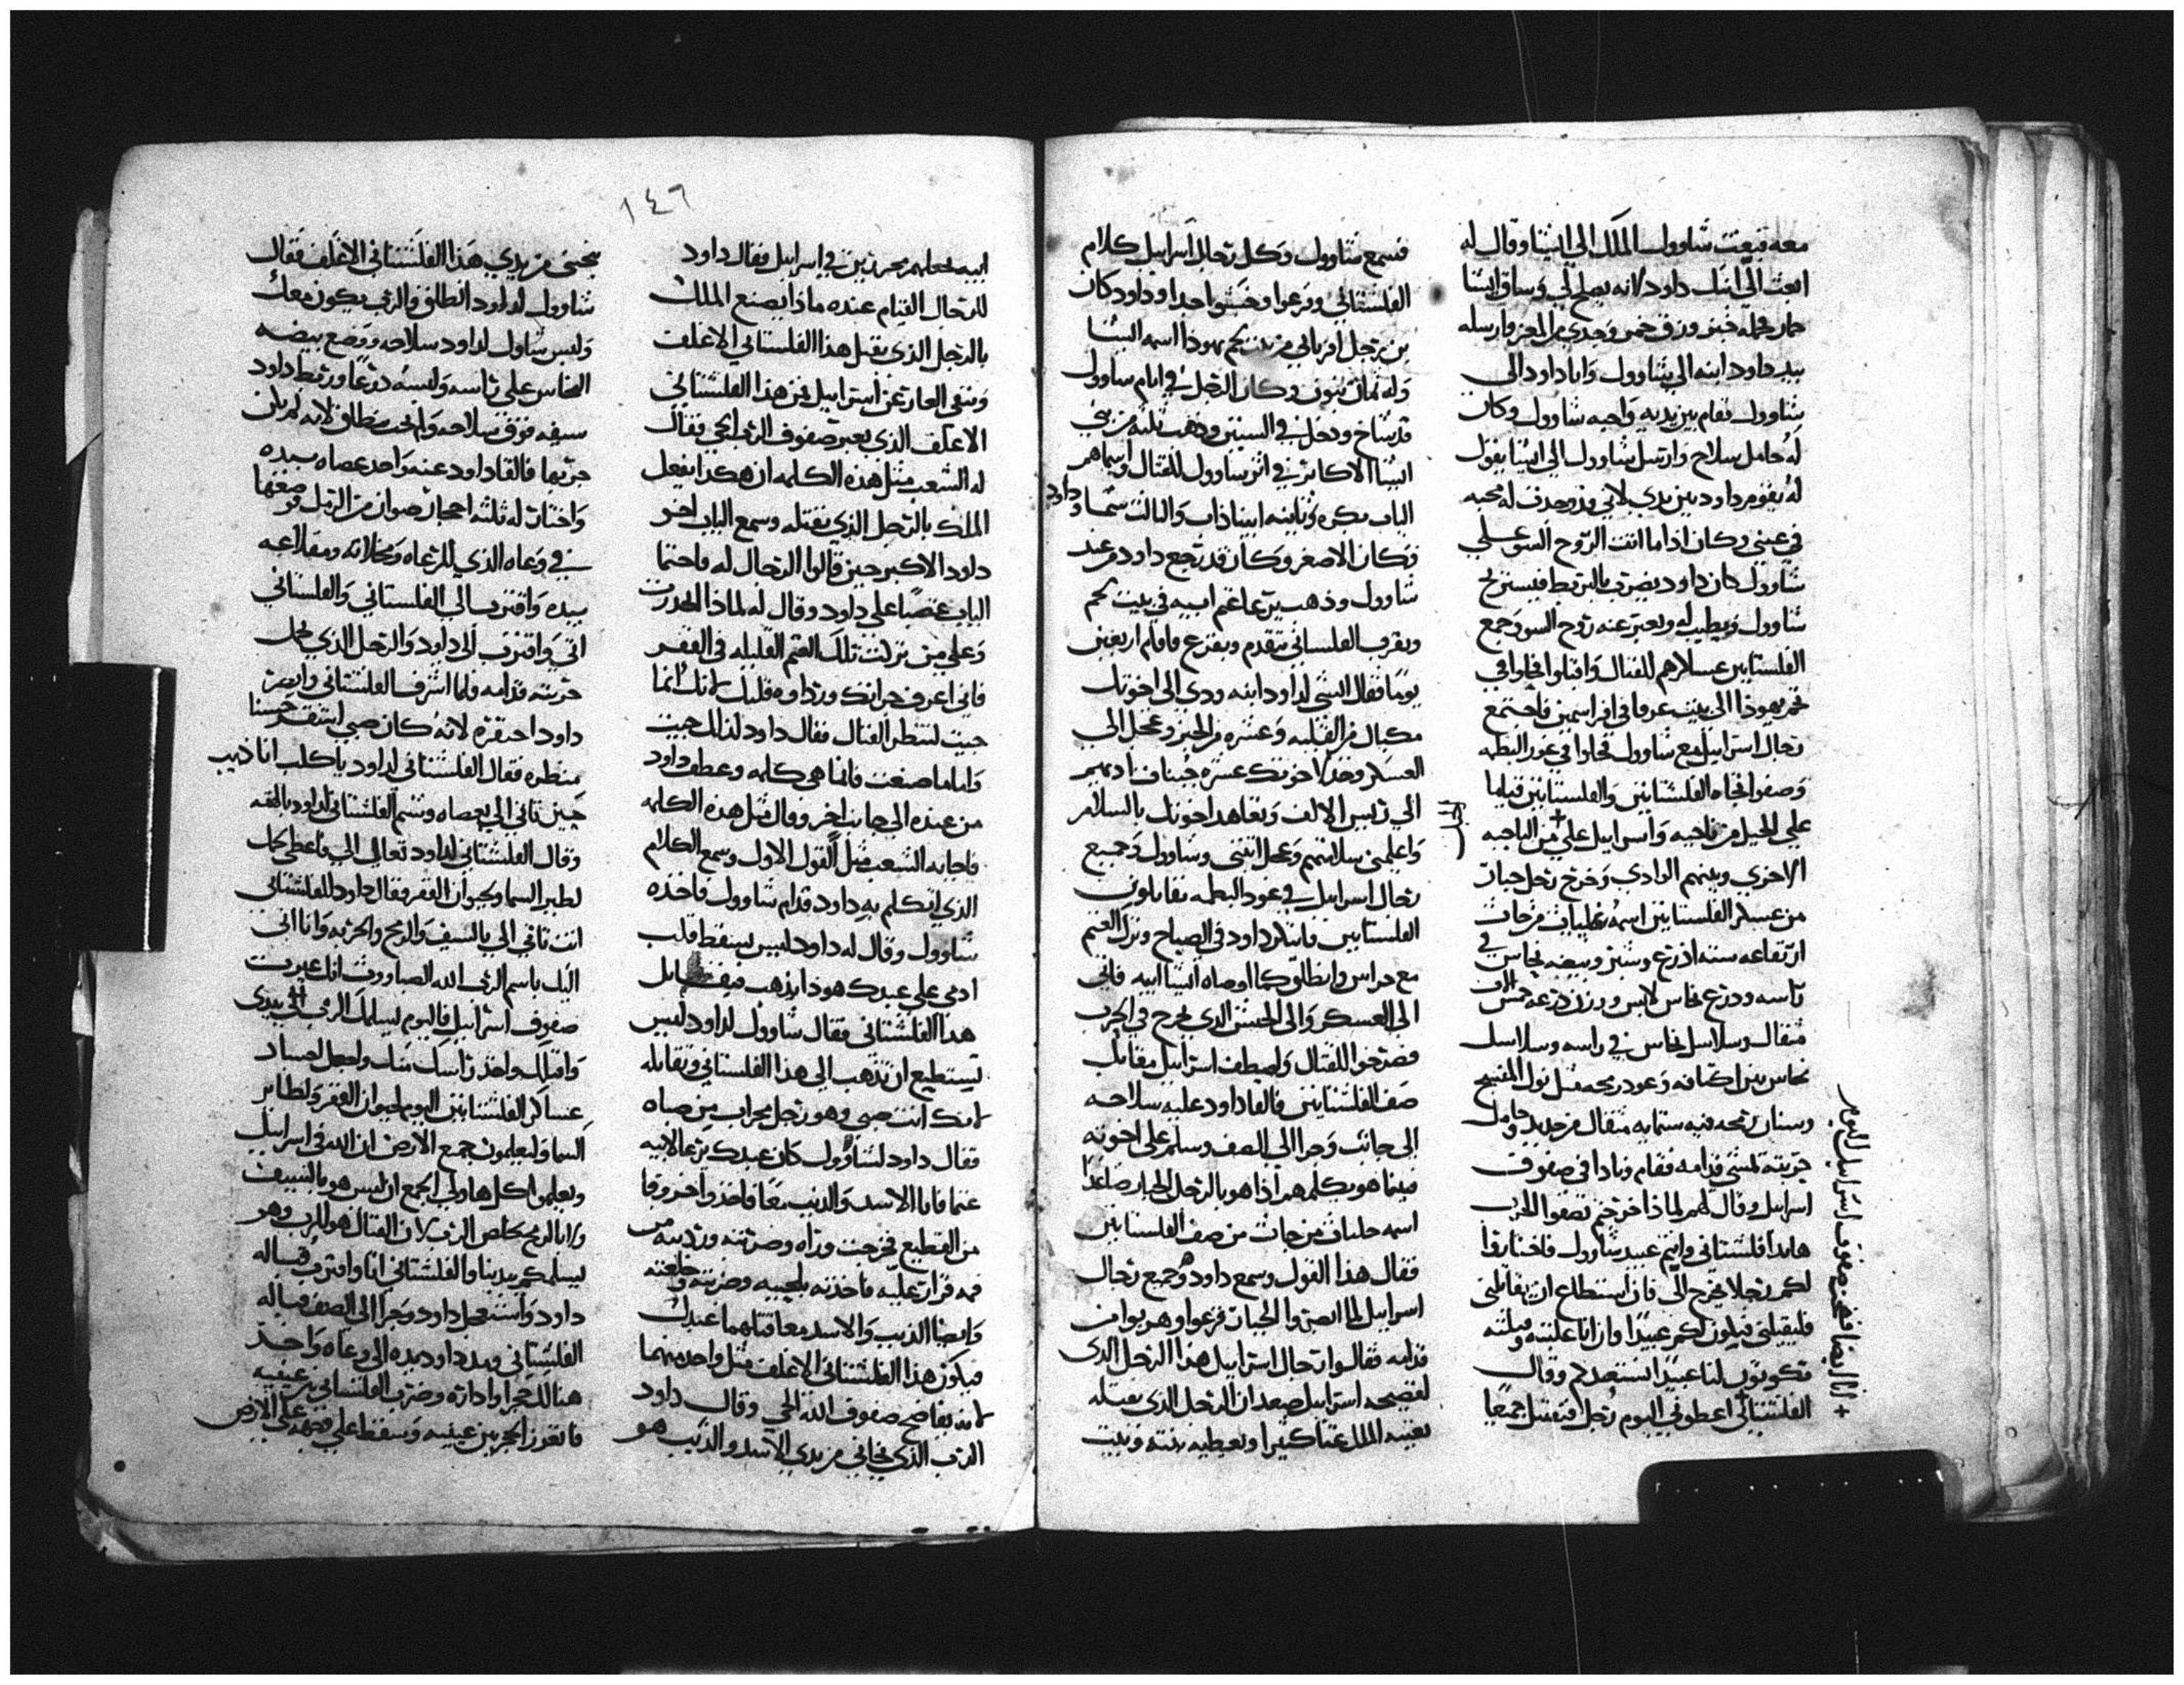 معه فبعث شاوول الملك الي ايشا وقال له
ابعث الي ابنك داود لانه يصلح لي وساق ايشا
حمار وحمله خبز وزق خمر وجدي من المعز وارسله
بيد داود ابنه الي شاوول واتا داود الي
شاوول فقام بين يديه واحبه شاوول وكان
له حامل سلاح وارسل شاوول الي ايشا يقول
له يقوم داود بين يدي لاني قد وجدت له محبه
في عيني وكان اذا ما اتت الروح السو علي
شاوول كان داود يضرب بالبربط فيستريح
شاوول ويطيب له وتعبر عنه روح السو وجمع
الفلستانين عسكرهم للقتال واقبلوا
يهوذا الي بيت عرفا في افراسمين فاجتمع
رجال اسراييل مع شاوول فحلوا في غور البطمه
وصفوا تجاه الفلشتانين والفلستانين قياما
علي الجبل من ناحيه واسراييل علي من الناحيه
الاخري وبينهم الوادي وخرج رجل جبار
من عسكر الفلستانين اسمه من جاث
ارتفاعه سته اذرع وشبر وبيضه نحاس في
راسه ودرع نحاس لابس ووزن درعه خمس الاف
مثقال وسلاسل نحاس في راسه وسلاسل
نحاس بين اكتافه وعود رمحه مثل نول المنسج
وسنان رمحه فيه ستمايه مثقال من حديد وحامل
حربته تمشي قدامه فقام ونادا في صفوف
اسراييل وقال لهم لماذا خرجتم تصفوا للحرب
هانذا فلشتاني وانتم عبيد شاوول فاختاروا
لكم رجلا يخرج الي فان استطاع ان يقاتلني
فليقتلني فنكون لكم عبيدا وان انا غلبته وقتلته
تكونون لنا عبيدا نستعبدكم وقال
الفلشتاني اعطوني اليوم رجل فنقتتل جميعا
صفوف اسراييل اليوم
فسمع شاوول وكل رجال اسراييل كلام
الفلشتاني وفزعوا وخشوا جدا وداود كان
بن رجل افراتي من بيت لحم يهوذا اسمه ايشا
وله ثمان بنون وكان الرجل في ايام شاوول
قد شاخ ودخل في السنين وذهب ثلثه من بني
ايشا الاكابر في اثر شاوول للقتال واسماهم
الياب بكره وثانيه ابيناذاب والثالث شما وداود
فكان الاصغر وكان قد رجع داود من عند
شاوول وذهب يرعا غنم ابيه في بيت لحم
ويقرب الفلستاني يتقدم ويفزع فاقام اربعين
يوما فقال ايشي لداود ابنه ودي الي اخوتك
مكيال من القليه وعشره من الخبز وعجل الي
العسكر وخذ لاخوتك عشره جبنات ادهبهم
الي رئيس الالف وتعاهد اخوتك بالسلام
واعلمني سلامتهم وعجل ايتني وشاوول وجميع
رجال اسراييل في غور البطمه يقاتلون
الفلستانين فابتكر داود في الصباح وترك الغنم
مع حراس وانطلق كما اوصاه ايشا ابيه فاتي
الي العسكر والي الجيش الذي يخرج في الحرب
فصرخوا للقتال واصطف اسراييل مقابل
صف الفلشتانين فالقا داود عليه سلاحه
الي جانب وجرا الي الصف وسلم علي اخوته
فبينما هو يكلمهم اذا هو بالرجل الجبار صاعدا
اسمه جلياث من جاث من صف الفلستانين
فقال هذا القول وسمع داود وجميع رجال
اسراييل لما ابصروا الجبار فزعوا وهربوا من
قدامه فقالوا رجال اسراييل هذا الرجل الذي
لفضيحه اسراييل صعد ان الرجل الذي يقتله
يغنيه الملك غنا كثيرا ويعطيه بنته وبيت
١٤٦
ابيه يجعلهم محررين في اسراييل فقال داود
للرجال القيام عنده ماذا يصنع الملك
بالرجل الذي يقتل هذا الفلستاني الاغلف
وينفي العار عن اسراييل من هذا الفلشتاني
الاغلف الذي يعير صفوف الرب الحي فقال
له الشعب مثل هذه الكلمه ان هكذا يفعل
الملك بالرجل الذي يقتله وسمع الياب اخو
داود الاكبر حين قالوا الرجال له فاحتما
الياب غضبا علي داود وقال له لماذا انحدرت
وعلي من تركت تلك الغنم القليله في القفر
فاني اعرف جراتك ورداوه قلبك لانك انما
جيت لتنظر القتال فقال داود لذلك جيت
وانا ما صنعت فانما هي كلمه وعطف داود
من عنده الي جانب اخر وقال مثل هذه الكلمه
فاجابه الشعب مثل القول الاول وسمع الكلام
الذي تكلم به داود قدام شاوول فاخذه
شاوول وقال له داود ليس يسقط قلب
ادمي علي عبدك هوذا يذهب فيقاتل
هذا الفلشتاني فقال شاوول لداود ليس
تستطيع ان تذهب الي هذا الفلستاني وتقاتله
لانك انت صبي وهو رجل محراب من صباه
فقال داود لشاوول كان عبدك يرعا لابيه
غنما فاتا الاسد والذيب معا فاخذوا خروفا
من القطيع فخرجت وراه وضربته ورديته من
فمه فزار عليه فاخذته بلحييه وضربته وخلعته
وايضا الذيب والاسد معا قتلهما عبدك
فيكون هذا الفلشتاني الاغلف مثل واحد منهما
لانه يفاضح صفوف الله الحي وقال داود
الرب الذي نجاني من يدي الاسد والذيب هو
ينجيني من يدي هذا الفلشتاني الاغلف فقال
شاوول لداود انطلق والرب يكون معك
ولبس شاول لداود سلاحه ووضع بيضه
النحاس علي راسه ولبسه درعا وربط داود
سيفه فوق سلاحه وامتحن منطلق لانه لم يكن
جربها فالقا داود عنه واخذ عصاه بيده
واختار له ثلثه احجار صوان من الرمل فوضعها
في وعاه الذي للرعاه ومخلاته ومقلاعه
بيده واقترب الي الفلستاني والفلستاني
اتي واقترب الي داود والرجل الذي يحمل
حربته قدامه فلما اشرف الفلشتاني وابصر
داود احتقره لانه كان صبي اشقر حسنا
منظره فقال الفلشتاني لداود يا كلب انا ذيب
حين تاتي الي بعصاه وشتم الفلشتاني لداود بالهه
وقال الفلشتاني لداود تعال الي فاعطي لحمك
لطير السما وحيوان القفر فقال داود للفلشتاني
انت تاتي الي بالسيف والرمح والحربه وانا اتي
اليك باسم الرب الله الصباووت انك عيرت
صفوف اسراييل فاليوم يسلمك الرب في يدي
واقتلك واخذ راسك منك واجعل اجساد
عساكر الفلشتانين اليوم لحيوان القفر ولطاير
السما وليعلمون جمع الارض ان الله في اسراييل
ويعلموا كل هاولي الجمع ان ليس هو بالسيف
ولا بالرمح يخلص الرب لان القتال هو للرب وهو
ليسلمكم بيدينا والفلشتاني اتا واقترب قباله
داود واستعجل داود وجرا الي الصف قباله
الفلشتاني ومد داود يده الي وعاه واخذ
هنالك حجرا واداره وضرب الفلشتاني بين عينيه
فانغرز الحجر بين عينيه وسقط علي وجهه علي الارض